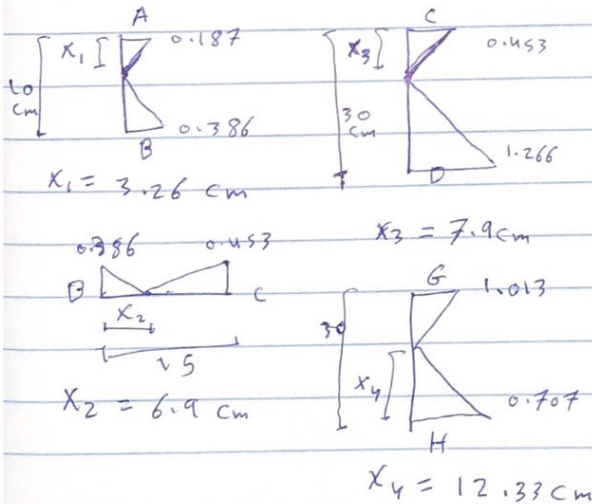 A
0.187
X1
10
cm
0.386
B
X1 = 3.26 cm
C
0.453
X3
30
cm
1.266
D
X3 = 7.9cm
0.386
0.453
B
C
X2
15
X2 = 6.9 cm
G
1.013
30
X4
0.707
H
X4 = 12.33 cm